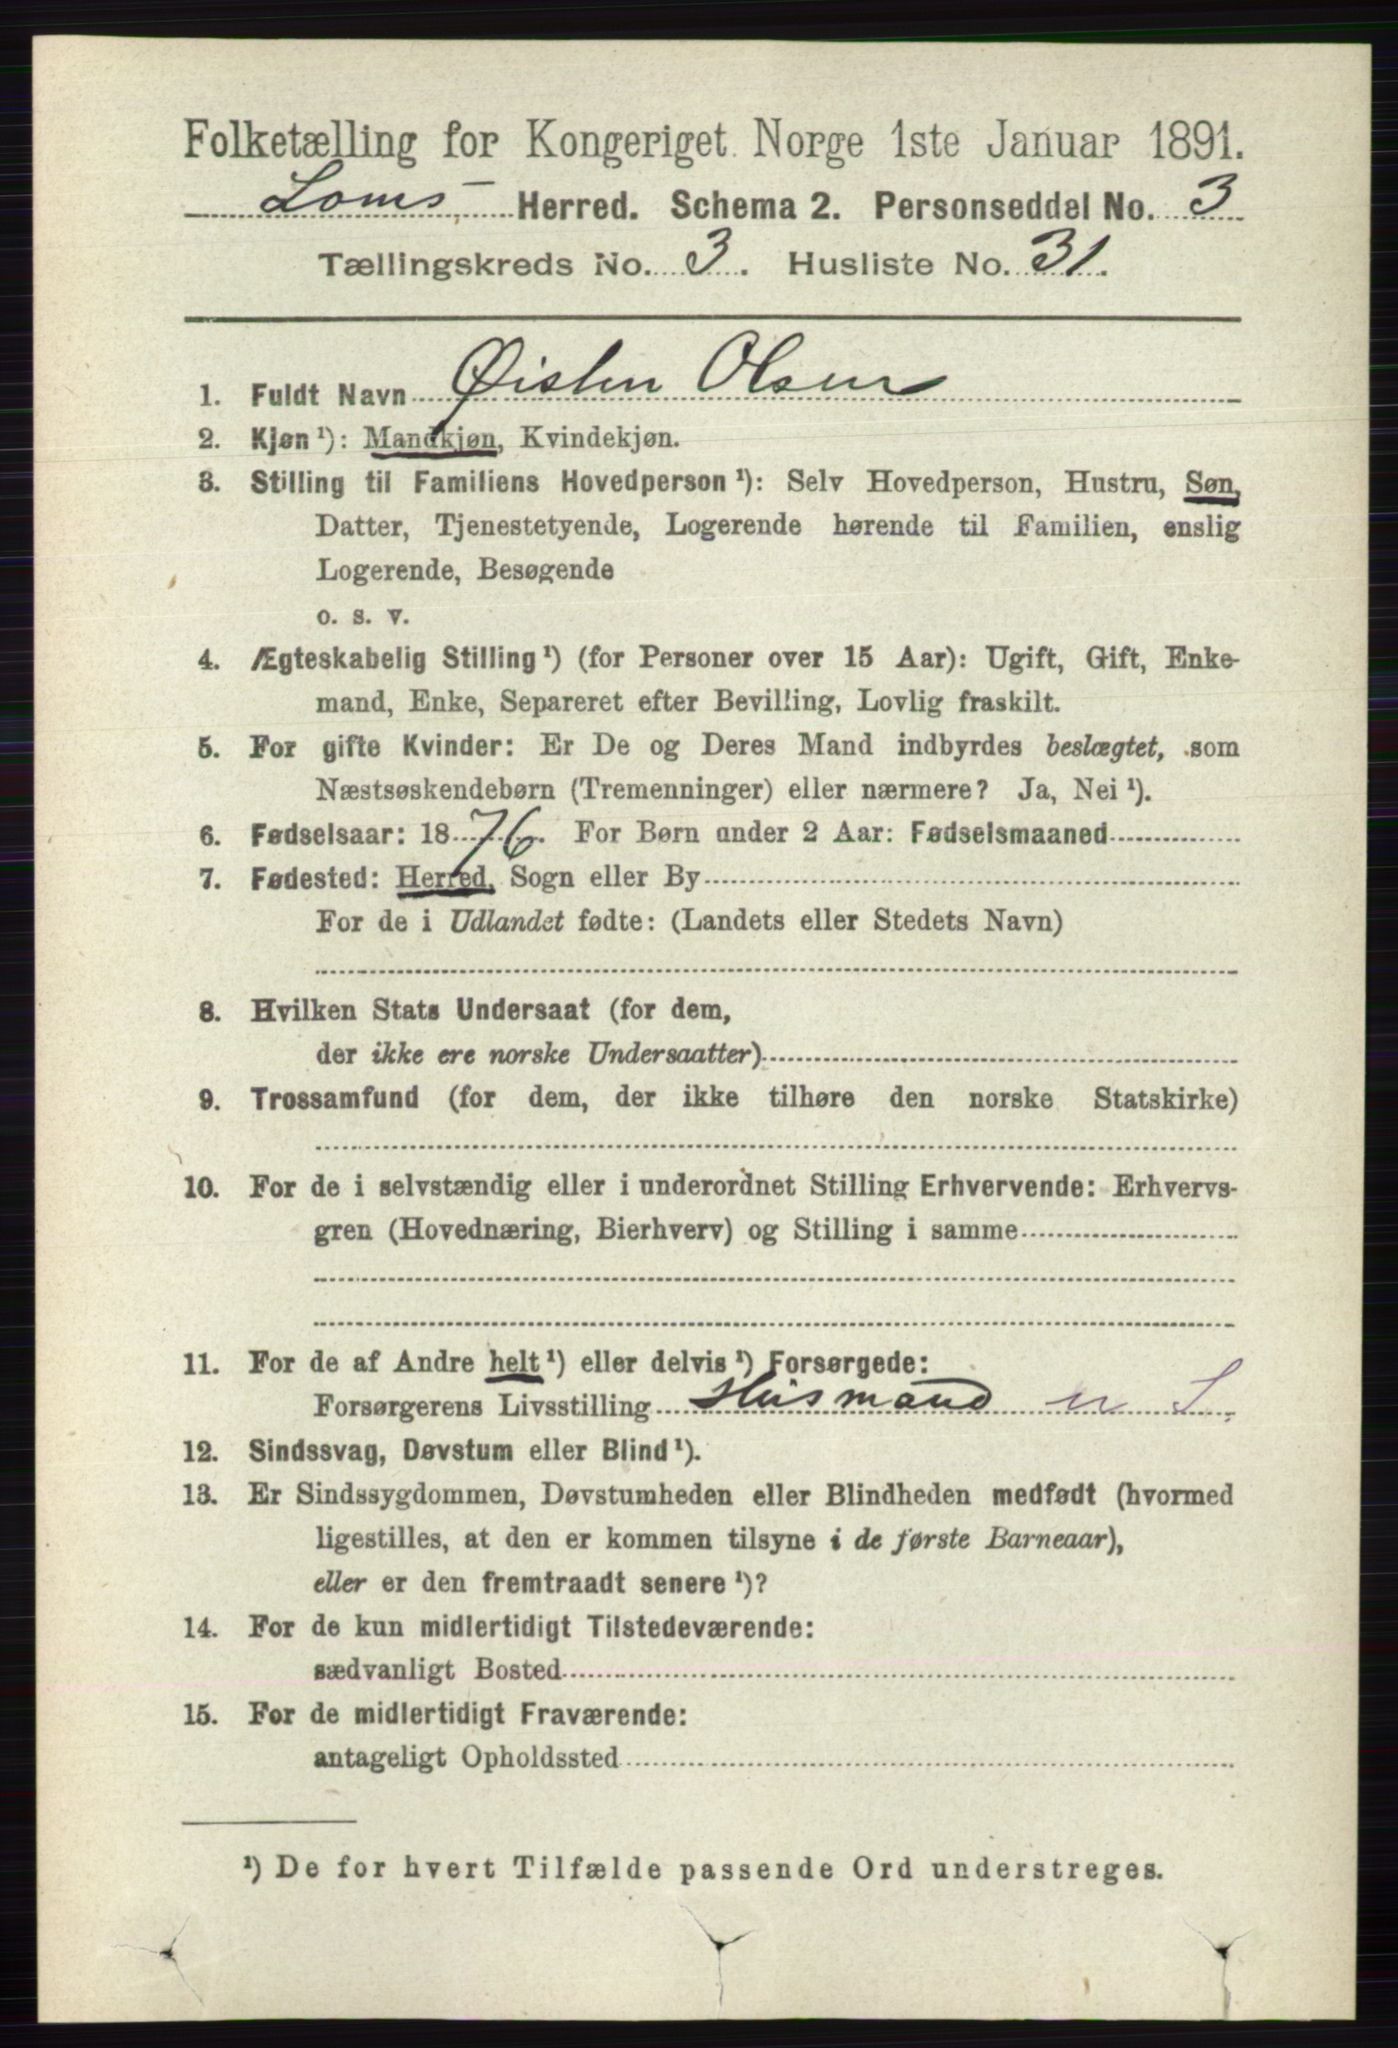 Folketælling for Kongeriget Norge 1ste Januar 1891.
Loms Herred. Schema 2. Personseddel No. 3
Tællingskreds No. 3. Husliste No. 31.
1. Fuldt Navn Øisten Olsen
2. Kjøn¹): Mandkjøn, Kvindekjøn.
3. Stilling til Familiens Hovedperson¹): Selv Hovedperson, Hustru, Søn,
Datter, Tjenestetyende, Logerende hørende til Familien, enslig
Logerende, Besøgende
o. s. v.
4. Ægteskabelig Stilling¹) (for Personer over 15 Aar): Ugift, Gift, Enke-
mand, Enke, Separeret efter Bevilling, Lovlig fraskilt.
5. For gifte Kvinder: Er De og Deres Mand indbyrdes beslægtet, som
Næstsøskendebørn (Tremenninger) eller nærmere? Ja, Nei¹).
6. Fødselsaar: 1876. For Børn under 2 Aar: Fødselsmaaned
7. Fødested: Herred, Sogn eller By
For de i Udlandet fødte: (Landets eller Stedets Navn)
8. Hvilken Stats Undersaat (for dem,
der ikke ere norske Undersaatter)
9. Trossamfund (for dem, der ikke tilhøre den norske Statskirke)
10. For de i selvstændig eller i underordnet Stilling Erhvervende: Erhvervs-
gren (Hovednæring, Bierhverv) og Stilling i samme
11. For de af Andre helt¹) eller delvis¹) Forsørgede:
Forsørgerens Livsstilling Husmand u S.
12. Sindssvag, Døvstum eller Blind¹).
13. Er Sindssygdommen, Døvstumheden eller Blindheden medfødt (hvormed
ligestilles, at den er kommen tilsyne i de første Barneaar),
eller er den fremtraadt senere¹)?
14. For de kun midlertidigt Tilstedeværende:
sædvanligt Bosted
15. For de midlertidigt Fraværende:
antageligt Opholdssted
¹) De for hvert Tilfælde passende Ord understreges.